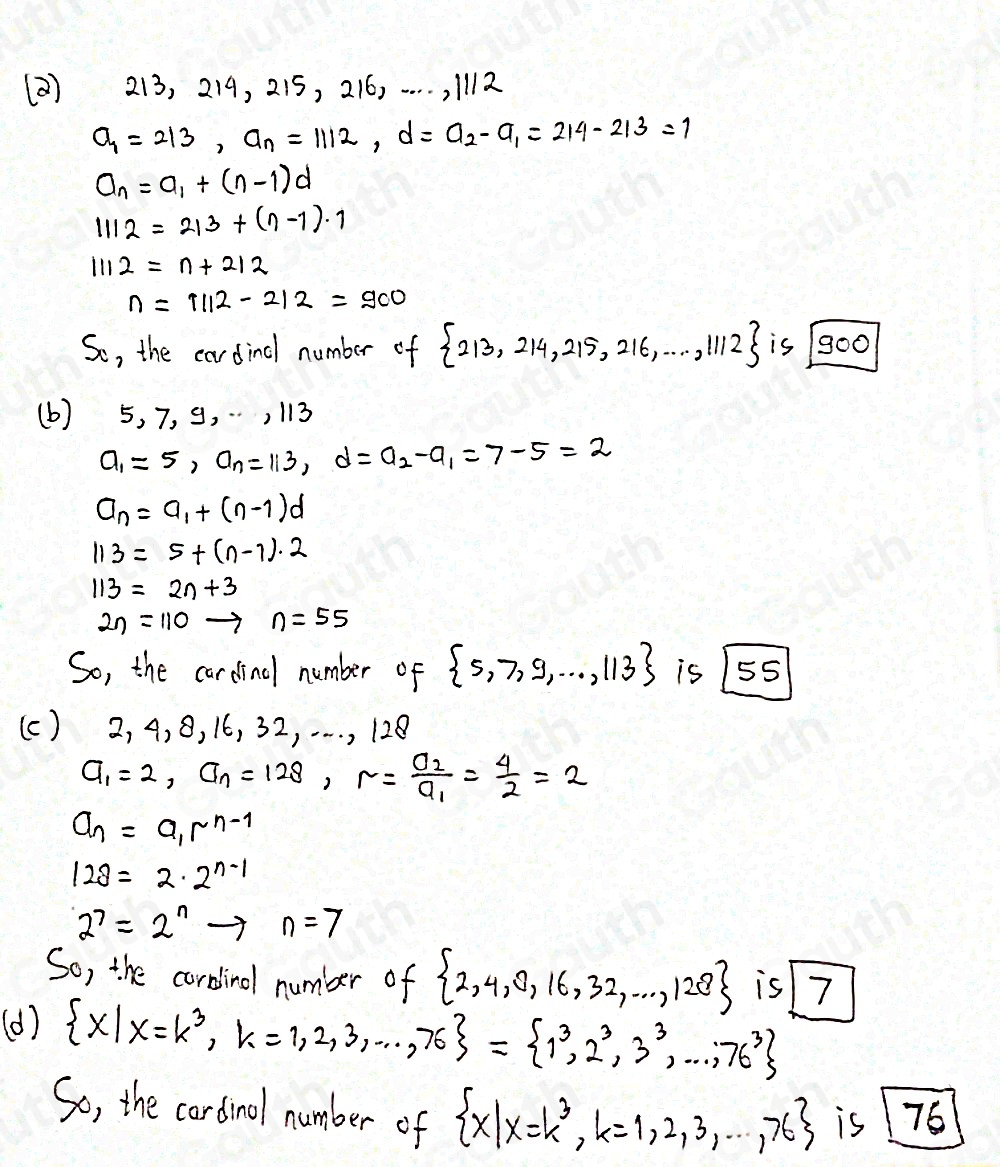 (a) 213, 214, 215, 216, ...., 1112
a₁ = 213, aₙ = 1112, d = a₂ - a₁ = 214 - 213 = 1
aₙ = a₁ + (n-1)d
1112 = 213 + (n-1)·1
1112 = n + 212
n = 1112 - 212 = 900
So, the cardinal number of {213, 214, 215, 216, ...., 1112} is 900
(b) 5, 7, 9, ..., 113
a₁ = 5, aₙ = 113, d = a₂ - a₁ = 7 - 5 = 2
aₙ = a₁ + (n-1)d
113 = 5 + (n-1)·2
113 = 2n + 3
2n = 110 → n = 55
So, the cardinal number of {5, 7, 9, ..., 113} is 55
(c) 2, 4, 8, 16, 32, ...., 128
a₁ = 2, aₙ = 128, r = a₂/a₁ = 4/2 = 2
aₙ = a₁rⁿ⁻¹
128 = 2·2ⁿ⁻¹
2⁷ = 2ⁿ → n = 7
So, the cardinal number of {2, 4, 8, 16, 32, ..., 128} is 7
(d) {x|x=k³, k=1,2,3,...,76} = {1³, 2³, 3³, ..., 76³}
So, the cardinal number of {x|x=k³, k=1,2,3,...,76} is 76